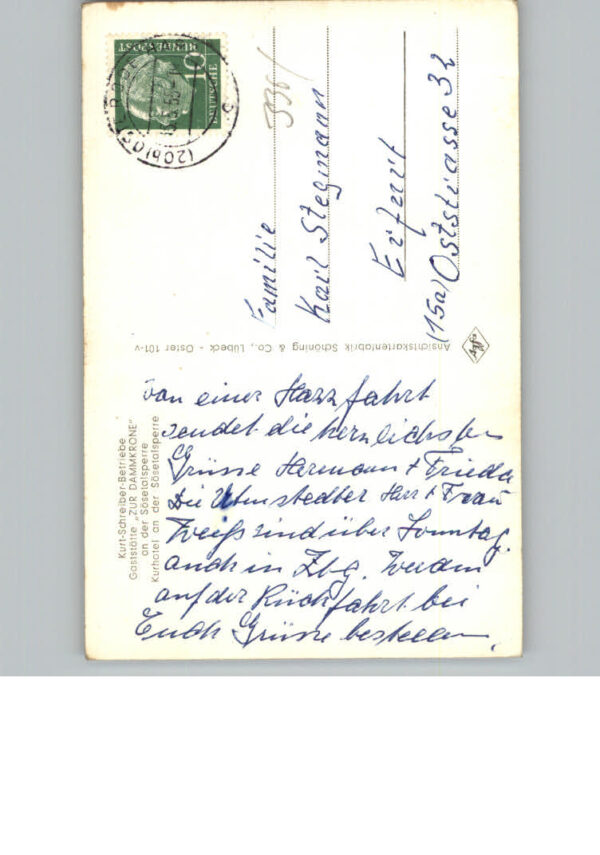 Kurt-Schreiber-Betriebe
Gaststätte „ZUR DAMMKRONE"
an der Sösetalsperre
Kurhotel an der Sösetalsperre
Von einer Harzfahrt
sendet die herzlichsten
Grüsse Hermann + Frieda
Die Utenstedter Herr + Frau
Weiß sind über Sonntag
auch in Zbg. werden
auf der Rückfahrt bei
Euch Grüsse bestellen.
Ansichtskartenfabrik Schöning & Co., Lübeck - Oster 101-v
Agfa
DEUTSCHE
BUNDESPOST
10
(20b) OSTERODE
336/
Familie
Karl Stegmann
Erfurt
(15a) Oststrasse 32